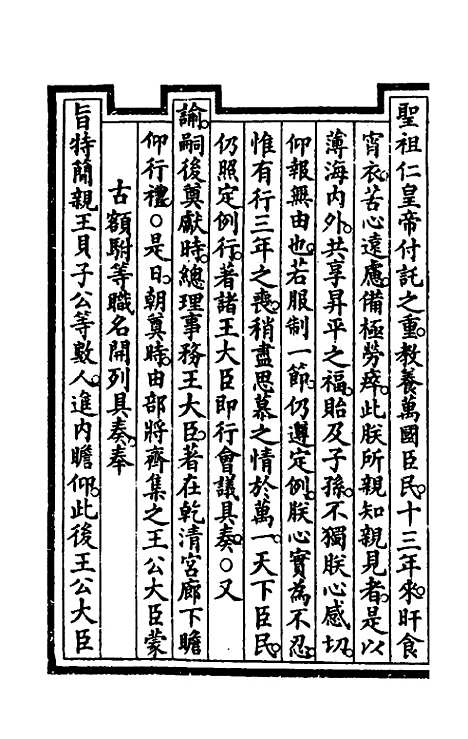 聖祖仁皇帝付託之重。教養萬國臣民。十三年來。旰食
宵衣。苦心遠慮。備極勞瘁。此朕所親知親見者。是以
薄海內外。共享昇平之福。貽及子孫。不獨朕心感切。
仰報無由也。若服制一節。仍遵定例。朕心實為不忍。
惟有行三年之喪。稍盡思慕之情於萬一。天下臣民。
仍照定例行。著諸王大臣即行會議具奏。○又
諭。嗣後奠獻時。總理事務王大臣。著在乾清宮廊下瞻
仰行禮。○是日。朝奠時。由部將齊集之王公大臣蒙
古額駙等職名開列具奏。奉
旨特簡親王貝子公等數人。進內瞻仰。此後王公大臣